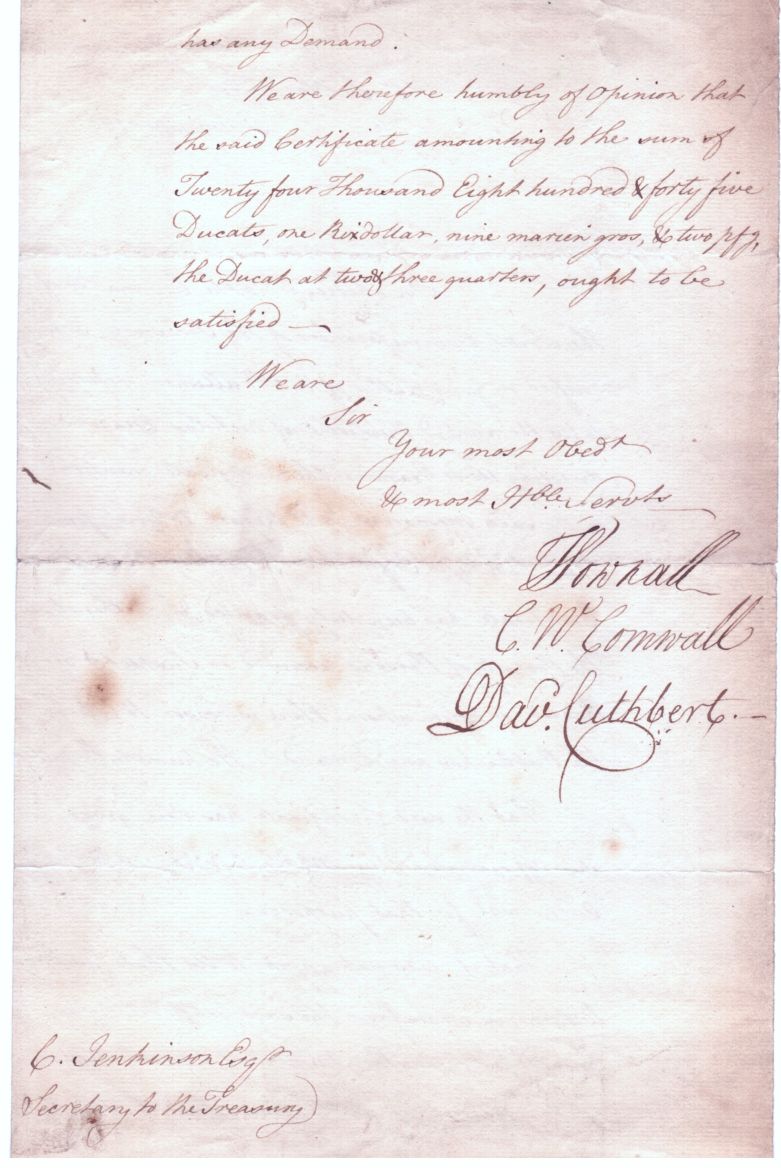 has any Demand.
We are therefore humbly of Opinion that
the said Certificate amounting to the sum of
Twenty four Thousand Eight hundred & forty five
Ducats, one Rixdollar, nine marien gros, & two pfg,
the Ducat at two & three quarters, ought to be
satisfied —
We are
Sir
Your most Obedt
& most Hble Servts
TPownall
C. W. Cornwall
Davd. Cuthbert. —
C. Jenkinson Esqr
Secretary to the Treasury